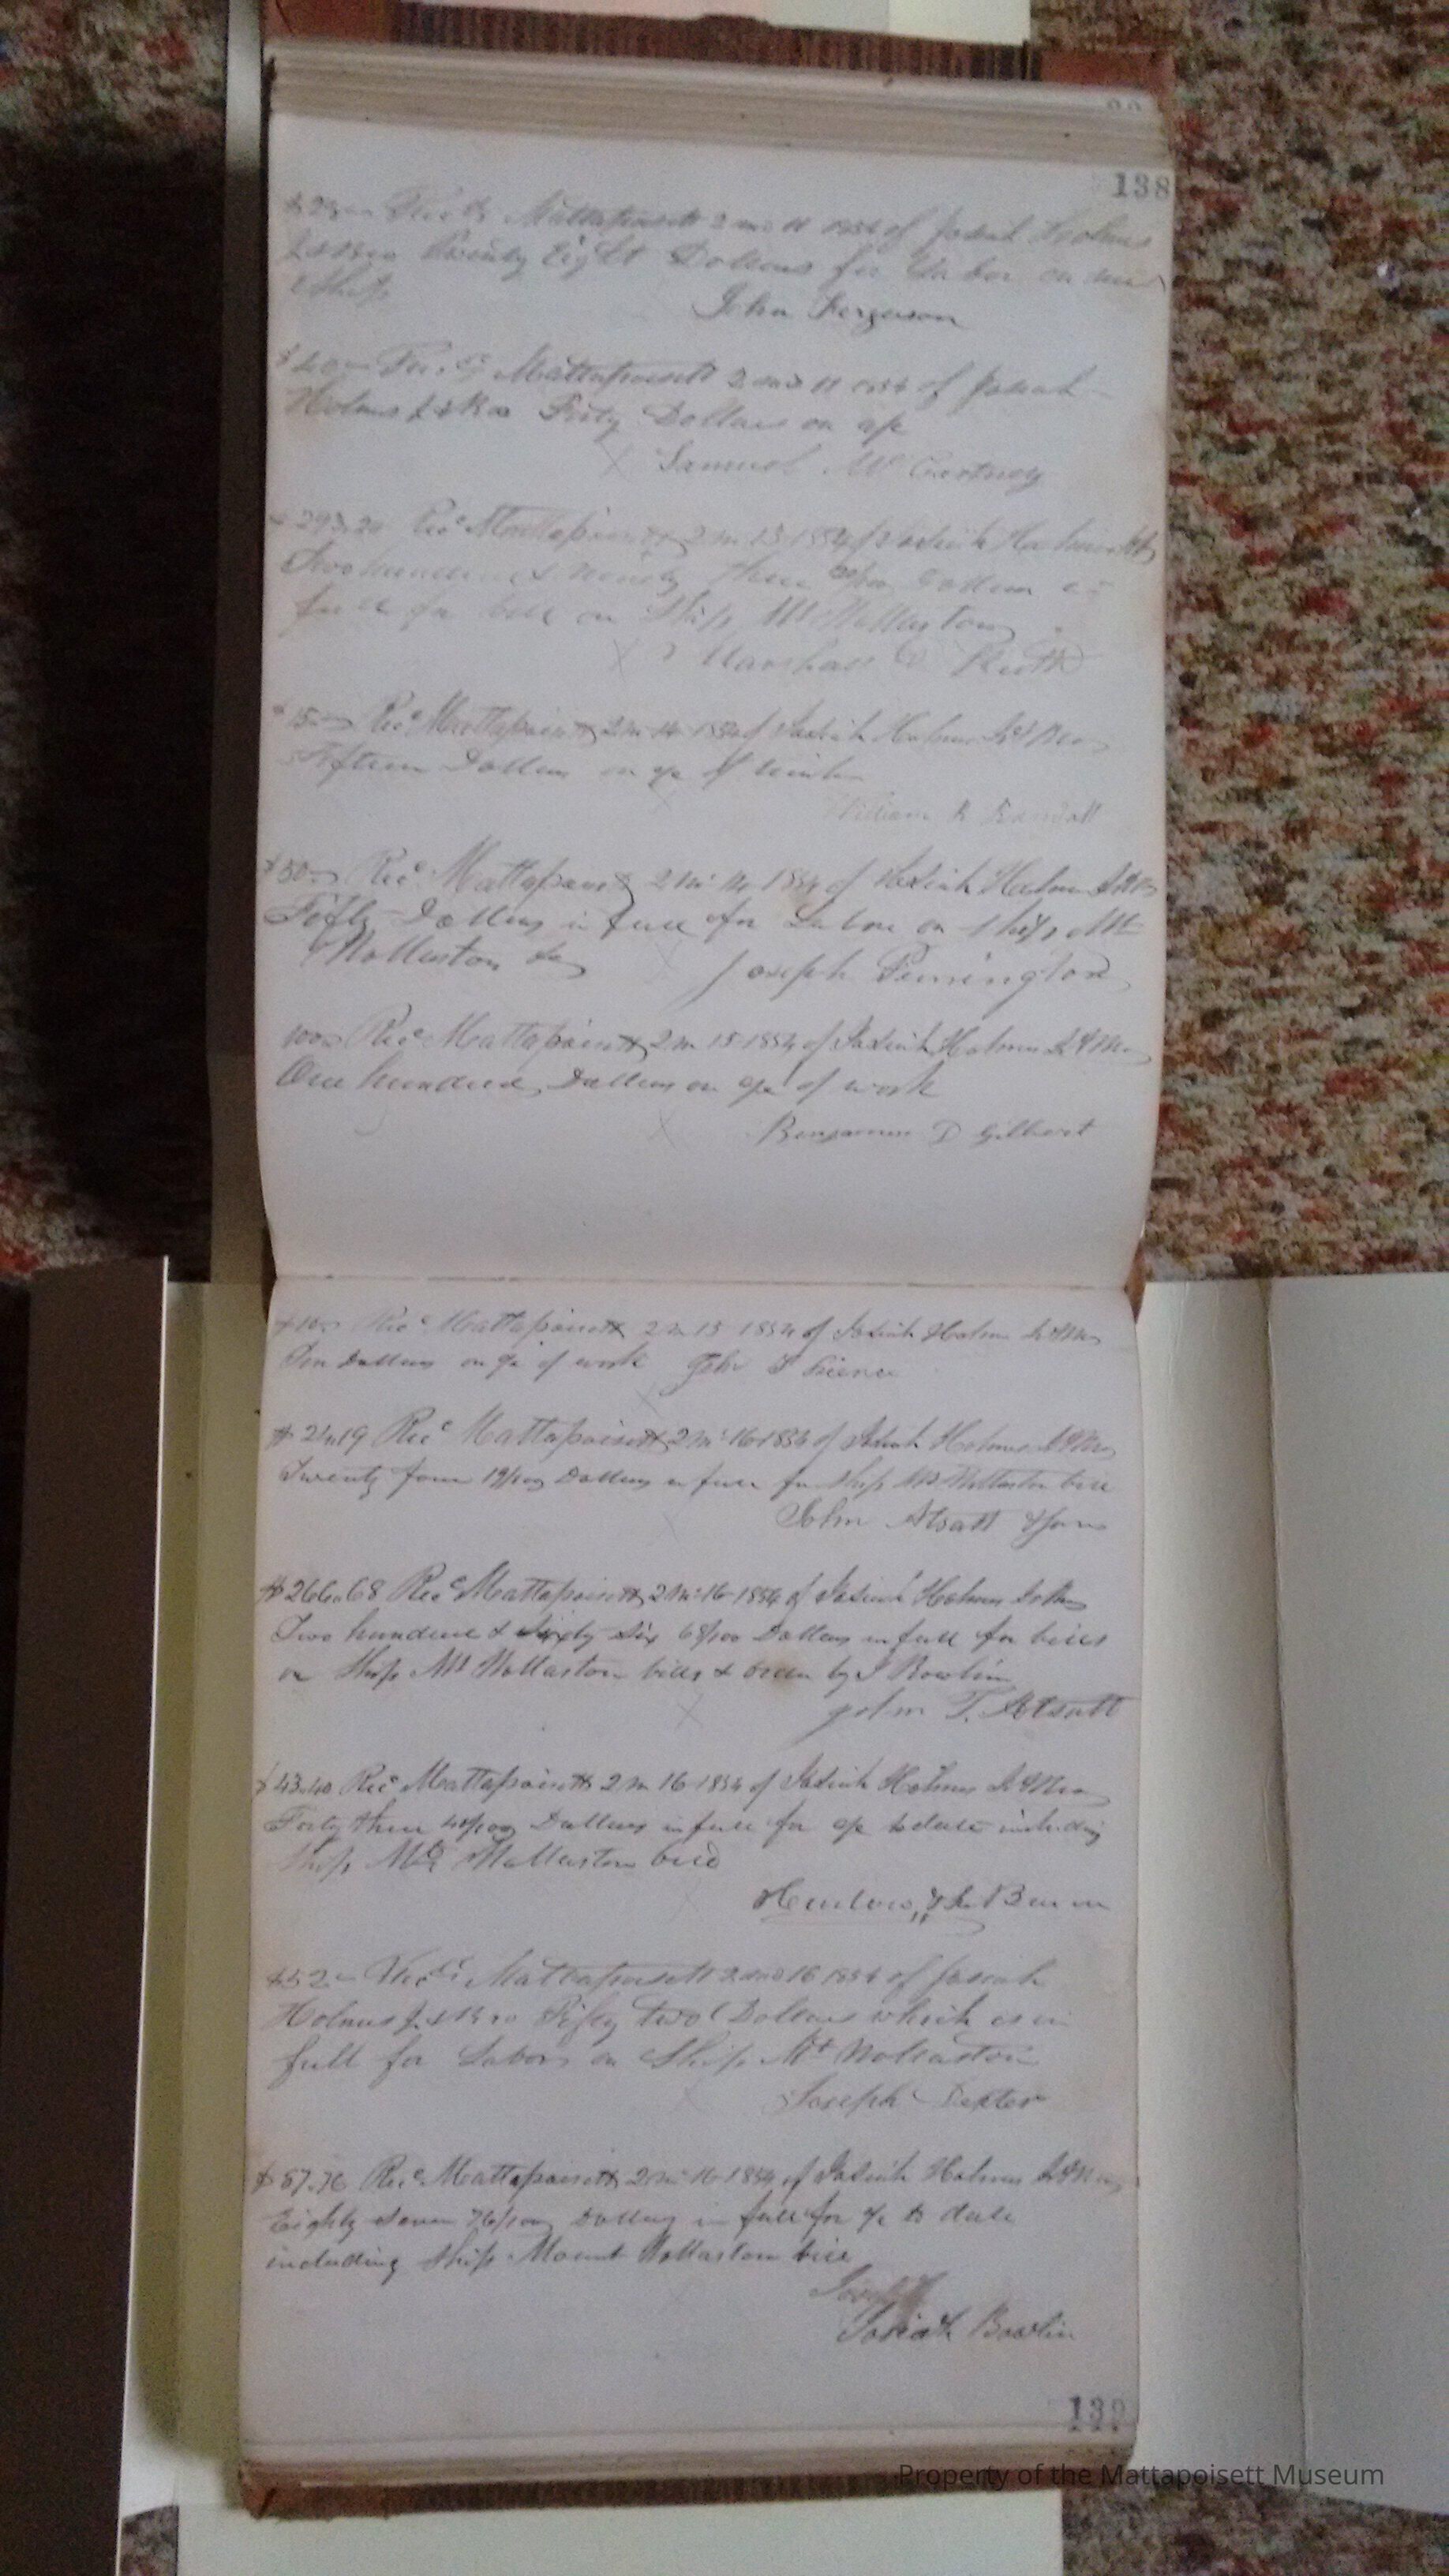 138
$28 Rec'd Mattapoisett 2 mo 11 1854 of Josiah Holmes
Jr & Bro Twenty Eight Dollars for Labor on new
Ship
John Ferguson
$40 Rec'd Mattapoisett 2 mo 11 1854 of Josiah
Holmes Jr & Bro Forty Dollars on a/c
X Samuel McCartney
293.20 Rec'd Mattapoisett 2 m 13 1854 of Josiah Holmes
Two hundred & ninety three 20/100 Dollars in
full for bill on Ship Mt Wollaston
X Marshall Keith
15 Rec'd Mattapoisett 2 m 14 1854 of Josiah Holmes Jr & Bro
Fifteen Dollars on a/c of
William R Randall
$50 Rec'd Mattapoisett 2 m 14 1854 of Josiah Holmes Jr & Bro
Fifty Dollars in full for Labor on Ship Mt
Wollaston Joseph Pennington
100 Rec'd Mattapoisett 2 m 15 1854 of Josiah Holmes Jr & Bro
One hundred Dollars on a/c of work
X Benjamin D Gilbert
$10 Rec'd Mattapoisett 2 m 15 1854 of Josiah Holmes Jr & Bro
Ten Dollars on a/c of work John
X
$24.19 Rec'd Mattapoisett 2 m 16 1854 of Josiah Holmes Jr & Bro
Twenty four 19/100 Dollars in full for Ship Mt Wollaston bill
John Atsatt & Sons
$266.68 Rec'd Mattapoisett 2 m 16 1854 of Josiah Holmes Jr & Bro
Two hundred & Sixty Six 68/100 Dollars in full for bills
on Ship Mt Wollaston bills & order by J Bowlin
X John T. Atsatt
$43.40 Rec'd Mattapoisett 2 m 16 1854 of Josiah Holmes Jr & Bro
Forty three 40/100 Dollars in full for a/c to date including
Ship Mt Wollaston bill
$52 Rec'd Mattapoisett 2 mo 16 1854 of Josiah
Holmes Jr & Bro Fifty two Dollars which is in
full for Labor on Ship Mt Wollaston
Joseph Dexter
$87.76 Rec'd Mattapoisett 2 m 16 1854 of Josiah Holmes Jr & Bro
Eighty Seven 76/100 Dollars in full for a/c to date
including Ship Mount Wollaston bill
Josiah Bowlin
139
Property of the Mattapoisett Museum